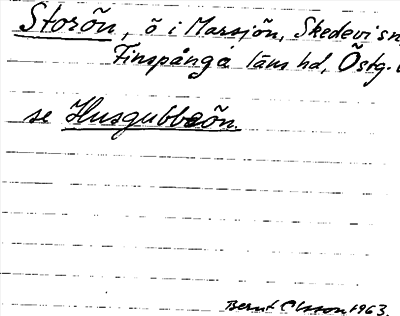 Storön, ö i Marsjön, Skedevi sn,
Finspånga läns hd, Östg.
se Husgubbeön.
Bernt Olsson 1963.